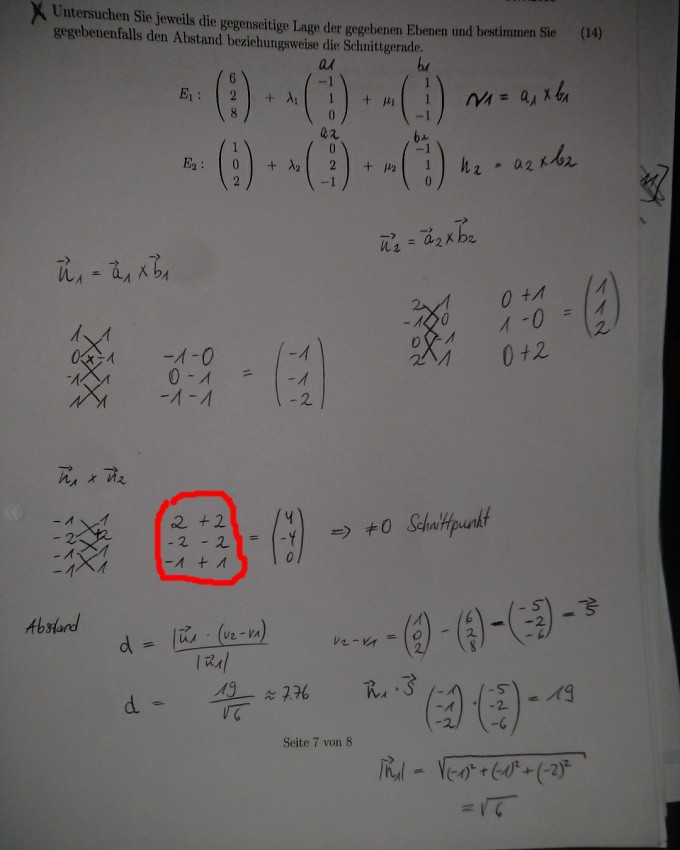 Untersuchen Sie jeweils die gegenseitige Lage der gegebenen Ebenen und bestimmen Sie (14)
gegebenenfalls den Abstand beziehungsweise die Schnittgerade.
a1 b1
E1 : (6 2 8) + λ1 (-1 1 0) + μ1 (1 1 -1) n1 = a1 x b1
a2 b2
E2 : (1 0 2) + λ2 (0 2 -1) + μ2 (-1 1 0) n2 = a2 x b2
n⃗2 = a⃗2 x b⃗2
n⃗1 = a⃗1 x b⃗1
2 1 0 +1
-1 0 1 -0 = (1 1 2)
0 -1 0+2
2 1
1 1
0 -1 -1 -0
-1 1 0 -1 = (-1 -1 -2)
1 1 -1 -1
n⃗1 x n⃗2
-1 1 2 +2
-2 2 -2 -2 = (4 -4 0) => ≠0 Schnittpunkt
-1 1 -1 +1
-1 1
Abstand
d = |n⃗1 · (v2-v1)| / |n⃗1|
v2-v1 = (1 0 2) - (6 2 8) = (-5 -2 -6) = s⃗
d = 19 / √6 ≈ 7.76
n⃗1 · s⃗ (-1 -1 -2) · (-5 -2 -6) = 19
Seite 7 von 8
|n⃗1| = √(-1)² + (-1)² + (-2)²
= √6